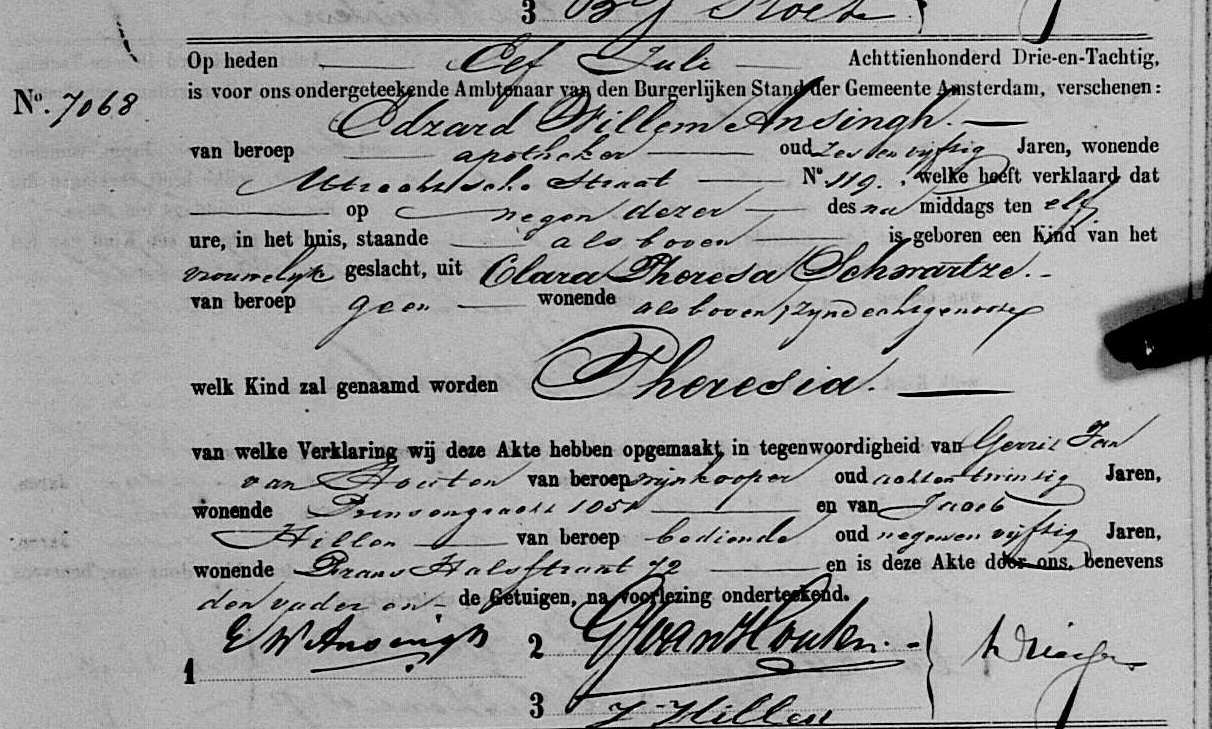 3
Op heden Elf Juli Achttienhonderd Drie-en-Tachtig,
No. 7068 is voor ons ondergeteekende Ambtenaar van den Burgerlijken Stand der Gemeente Amsterdam, verschenen:
Edzard Willem Ansingh.
van beroep apotheker oud zesenvijftig Jaren, wonende
Utrechtsche Straat No 119. , welke heeft verklaard dat
op negen dezer des na middags ten elf
ure, in het huis, staande als boven is geboren een Kind van het
vrouwelijk geslacht, uit Clara Theresa Schwartze.
van beroep geen wonende als boven, zijnde echtgenoote
welk Kind zal genaamd worden Theresia.
van welke Verklaring wij deze Akte hebben opgemaakt, in tegenwoordigheid van Gerrit Jan
van Houten van beroep wijnkooper oud achtentwintig Jaren,
wonende Prinsengracht 1051 en van Jacob
Hillen van beroep bediende oud negenenvijftig Jaren,
wonende Frans Halsstraat 72 en is deze Akte door ons, benevens
den vader en de Getuigen, na voorlezing onderteekend.
1 E W Ansingh 2 GJvanHouten.
3 J Hillen